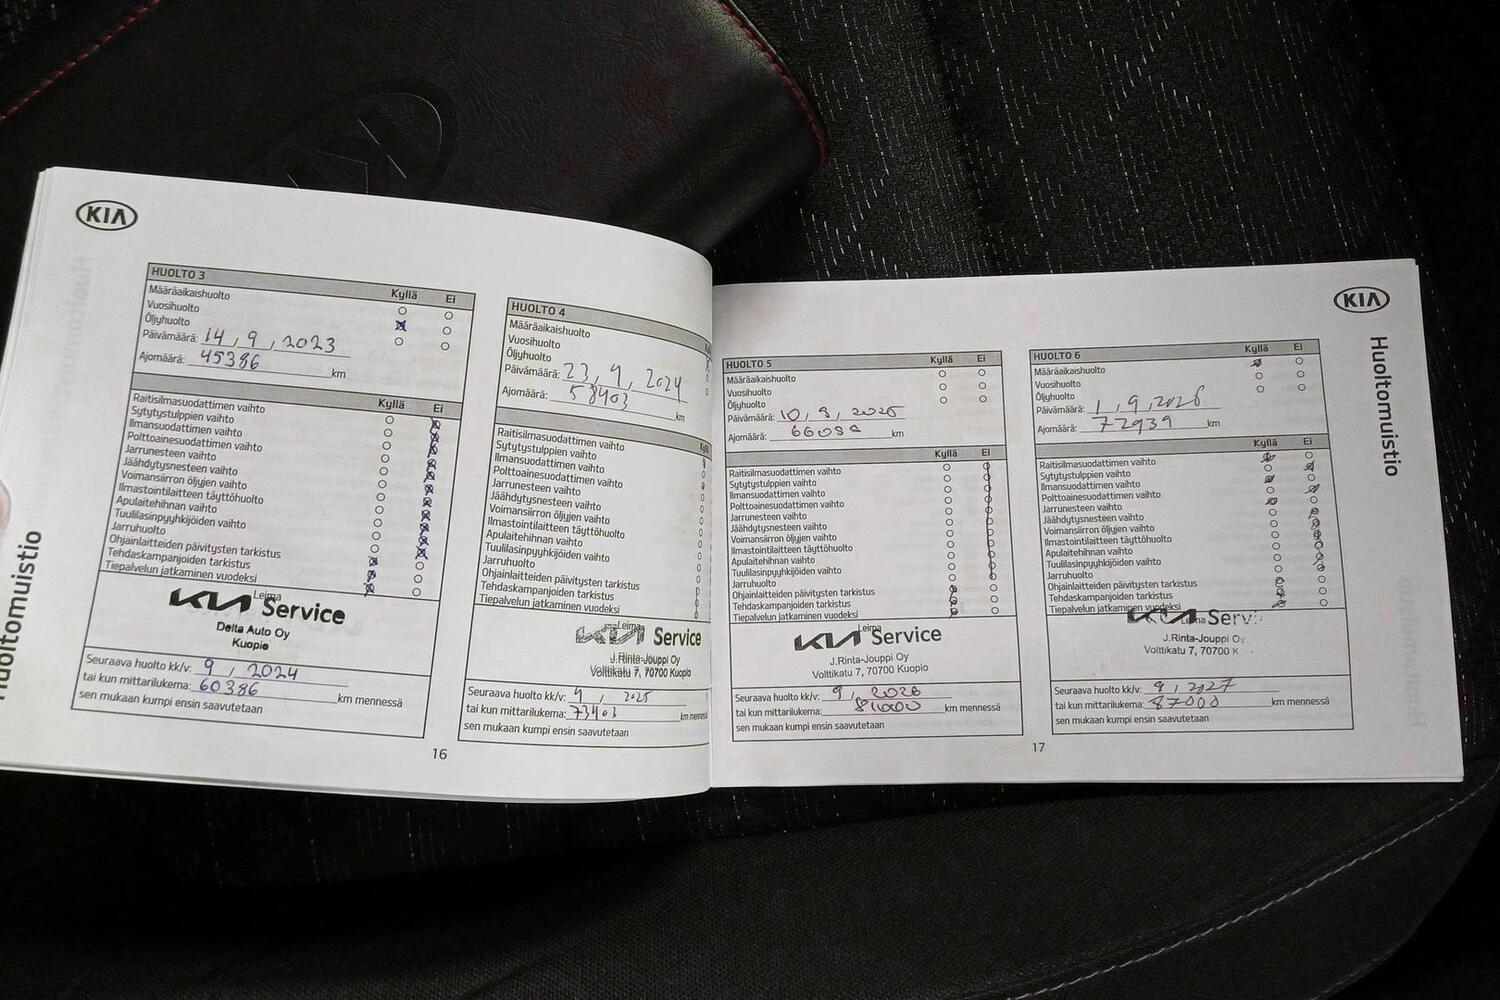 KIA
HUOLTO 3
Kyllä Ei
Määräaikaishuolto
Vuosihuolto
Öljyhuolto
Päivämäärä: 14, 9, 2023
Ajomäärä: 45386 km
Kyllä Ei
Raitisilmasuodattimen vaihto
Sytytystulppien vaihto
Ilmansuodattimen vaihto
Polttoainesuodattimen vaihto
Jarrunesteen vaihto
Jäähdytysnesteen vaihto
Voimansiirron öljyjen vaihto
Ilmastointilaitteen täyttöhuolto
Apulaitehihnan vaihto
Tuulilasinpyyhkijöiden vaihto
Jarruhuolto
Ohjainlaitteiden päivitysten tarkistus
Tehdaskampanjoiden tarkistus
Tiepalvelun jatkaminen vuodeksi
Leima
KIA Service
Delta Auto Oy
Kuopio
Seuraava huolto kk/v: 9, 2024
tai kun mittarilukema: 60386 km mennessä
sen mukaan kumpi ensin saavutetaan
16
HUOLTO 4
Määräaikaishuolto
Vuosihuolto
Öljyhuolto
Päivämäärä: 23, 9, 2024
Ajomäärä: 58403 km
Raitisilmasuodattimen vaihto
Sytytystulppien vaihto
Ilmansuodattimen vaihto
Polttoainesuodattimen vaihto
Jarrunesteen vaihto
Jäähdytysnesteen vaihto
Voimansiirron öljyjen vaihto
Ilmastointilaitteen täyttöhuolto
Apulaitehihnan vaihto
Tuulilasinpyyhkijöiden vaihto
Jarruhuolto
Ohjainlaitteiden päivitysten tarkistus
Tehdaskampanjoiden tarkistus
Tiepalvelun jatkaminen vuodeksi
Leima
KIA Service
J.Rinta-Jouppi Oy
Volttikatu 7, 70700 Kuopio
Seuraava huolto kk/v: 9, 2025
tai kun mittarilukema: 73403 km mennessä
sen mukaan kumpi ensin saavutetaan
HUOLTO 5
Kyllä Ei
Määräaikaishuolto
Vuosihuolto
Öljyhuolto
Päivämäärä: 10, 9, 2025
Ajomäärä: km
Kyllä Ei
Raitisilmasuodattimen vaihto
Sytytystulppien vaihto
Ilmansuodattimen vaihto
Polttoainesuodattimen vaihto
Jarrunesteen vaihto
Jäähdytysnesteen vaihto
Voimansiirron öljyjen vaihto
Ilmastointilaitteen täyttöhuolto
Apulaitehihnan vaihto
Tuulilasinpyyhkijöiden vaihto
Jarruhuolto
Ohjainlaitteiden päivitysten tarkistus
Tehdaskampanjoiden tarkistus
Tiepalvelun jatkaminen vuodeksi
Leima
KIA Service
J.Rinta-Jouppi Oy
Volttikatu 7, 70700 Kuopio
Seuraava huolto kk/v: 9, 2026
tai kun mittarilukema: 81000 km mennessä
sen mukaan kumpi ensin saavutetaan
17
KIA
HUOLTO 6
Kyllä Ei
Määräaikaishuolto
Vuosihuolto
Öljyhuolto
Päivämäärä: 1, 9, 2026
Ajomäärä: 72939 km
Kyllä Ei
Raitisilmasuodattimen vaihto
Sytytystulppien vaihto
Ilmansuodattimen vaihto
Polttoainesuodattimen vaihto
Jarrunesteen vaihto
Jäähdytysnesteen vaihto
Voimansiirron öljyjen vaihto
Ilmastointilaitteen täyttöhuolto
Apulaitehihnan vaihto
Tuulilasinpyyhkijöiden vaihto
Jarruhuolto
Ohjainlaitteiden päivitysten tarkistus
Tehdaskampanjoiden tarkistus
Tiepalvelun jatkaminen vuodeksi
Leima
KIA Servi
J.Rinta-Jouppi Oy
Volttikatu 7, 70700 K
Seuraava huolto kk/v: 9, 2027
tai kun mittarilukema: 87000 km mennessä
sen mukaan kumpi ensin saavutetaan
Huoltomuistio
Huoltomuistio